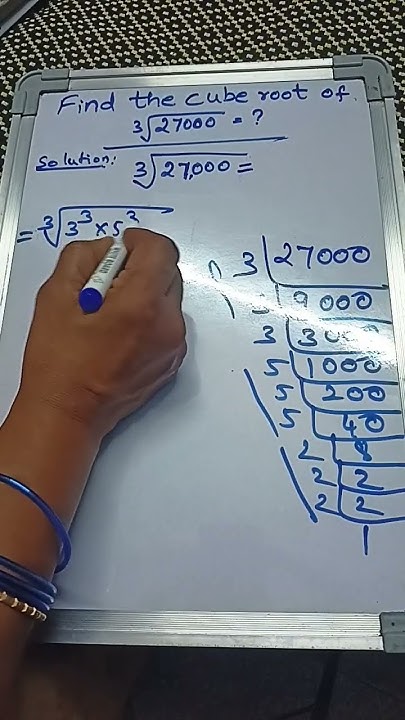 Find the cube root of.
∛27000 = ?
Solution:
∛27,000 =
= ∛3³ × 5³
3 | 27000
9000
3 | 3000
5 | 1000
5 | 200
5 | 40
2 | 8
2 | 2
2 | 2
1